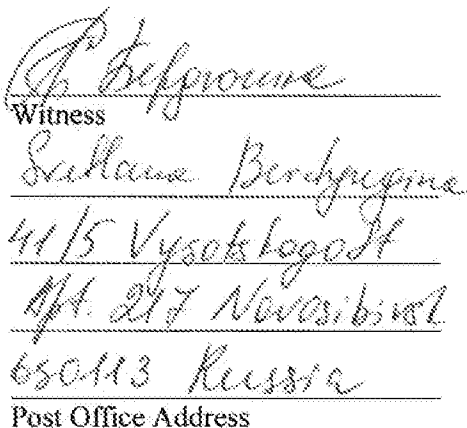 Witness
Svetlana
41/5 Vysotskogo St
Apt. 217 Novosibirsk
630113 Russia
Post Office Address